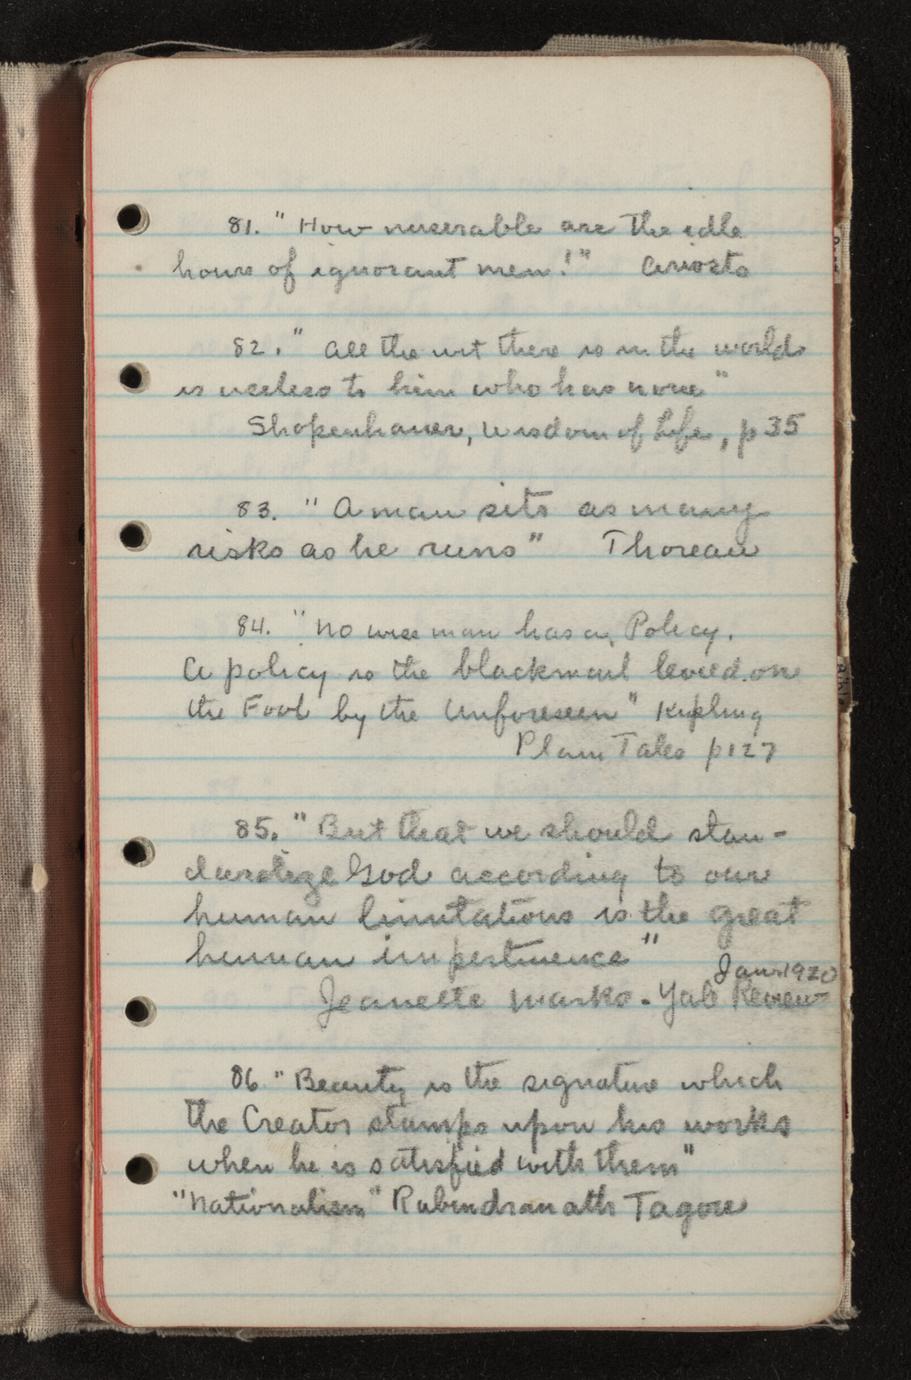 81. " How miserable are the idle
hours of ignorant men!" Ariosto
82. " All the wit there is in the world
is useless to him who has none"
Shopenhauer, Wisdom of Life, p 35
83. " A man sits as many
risks as he runs" Thoreau
84. " No wise man has a Policy.
A policy is the blackmail levied on
the Fool by the Unforeseen" Kipling
Plain Tales p 127
85. " But that we should stan-
dardize God according to our
human limitations is the great
human impertinence"
Jan. 1920
Jeanette Marks - Yale Review
86. " Beauty is the signature which
the Creator stamps upon his works
when he is satisfied with them"
"Nationalism" Rabindranath Tagore